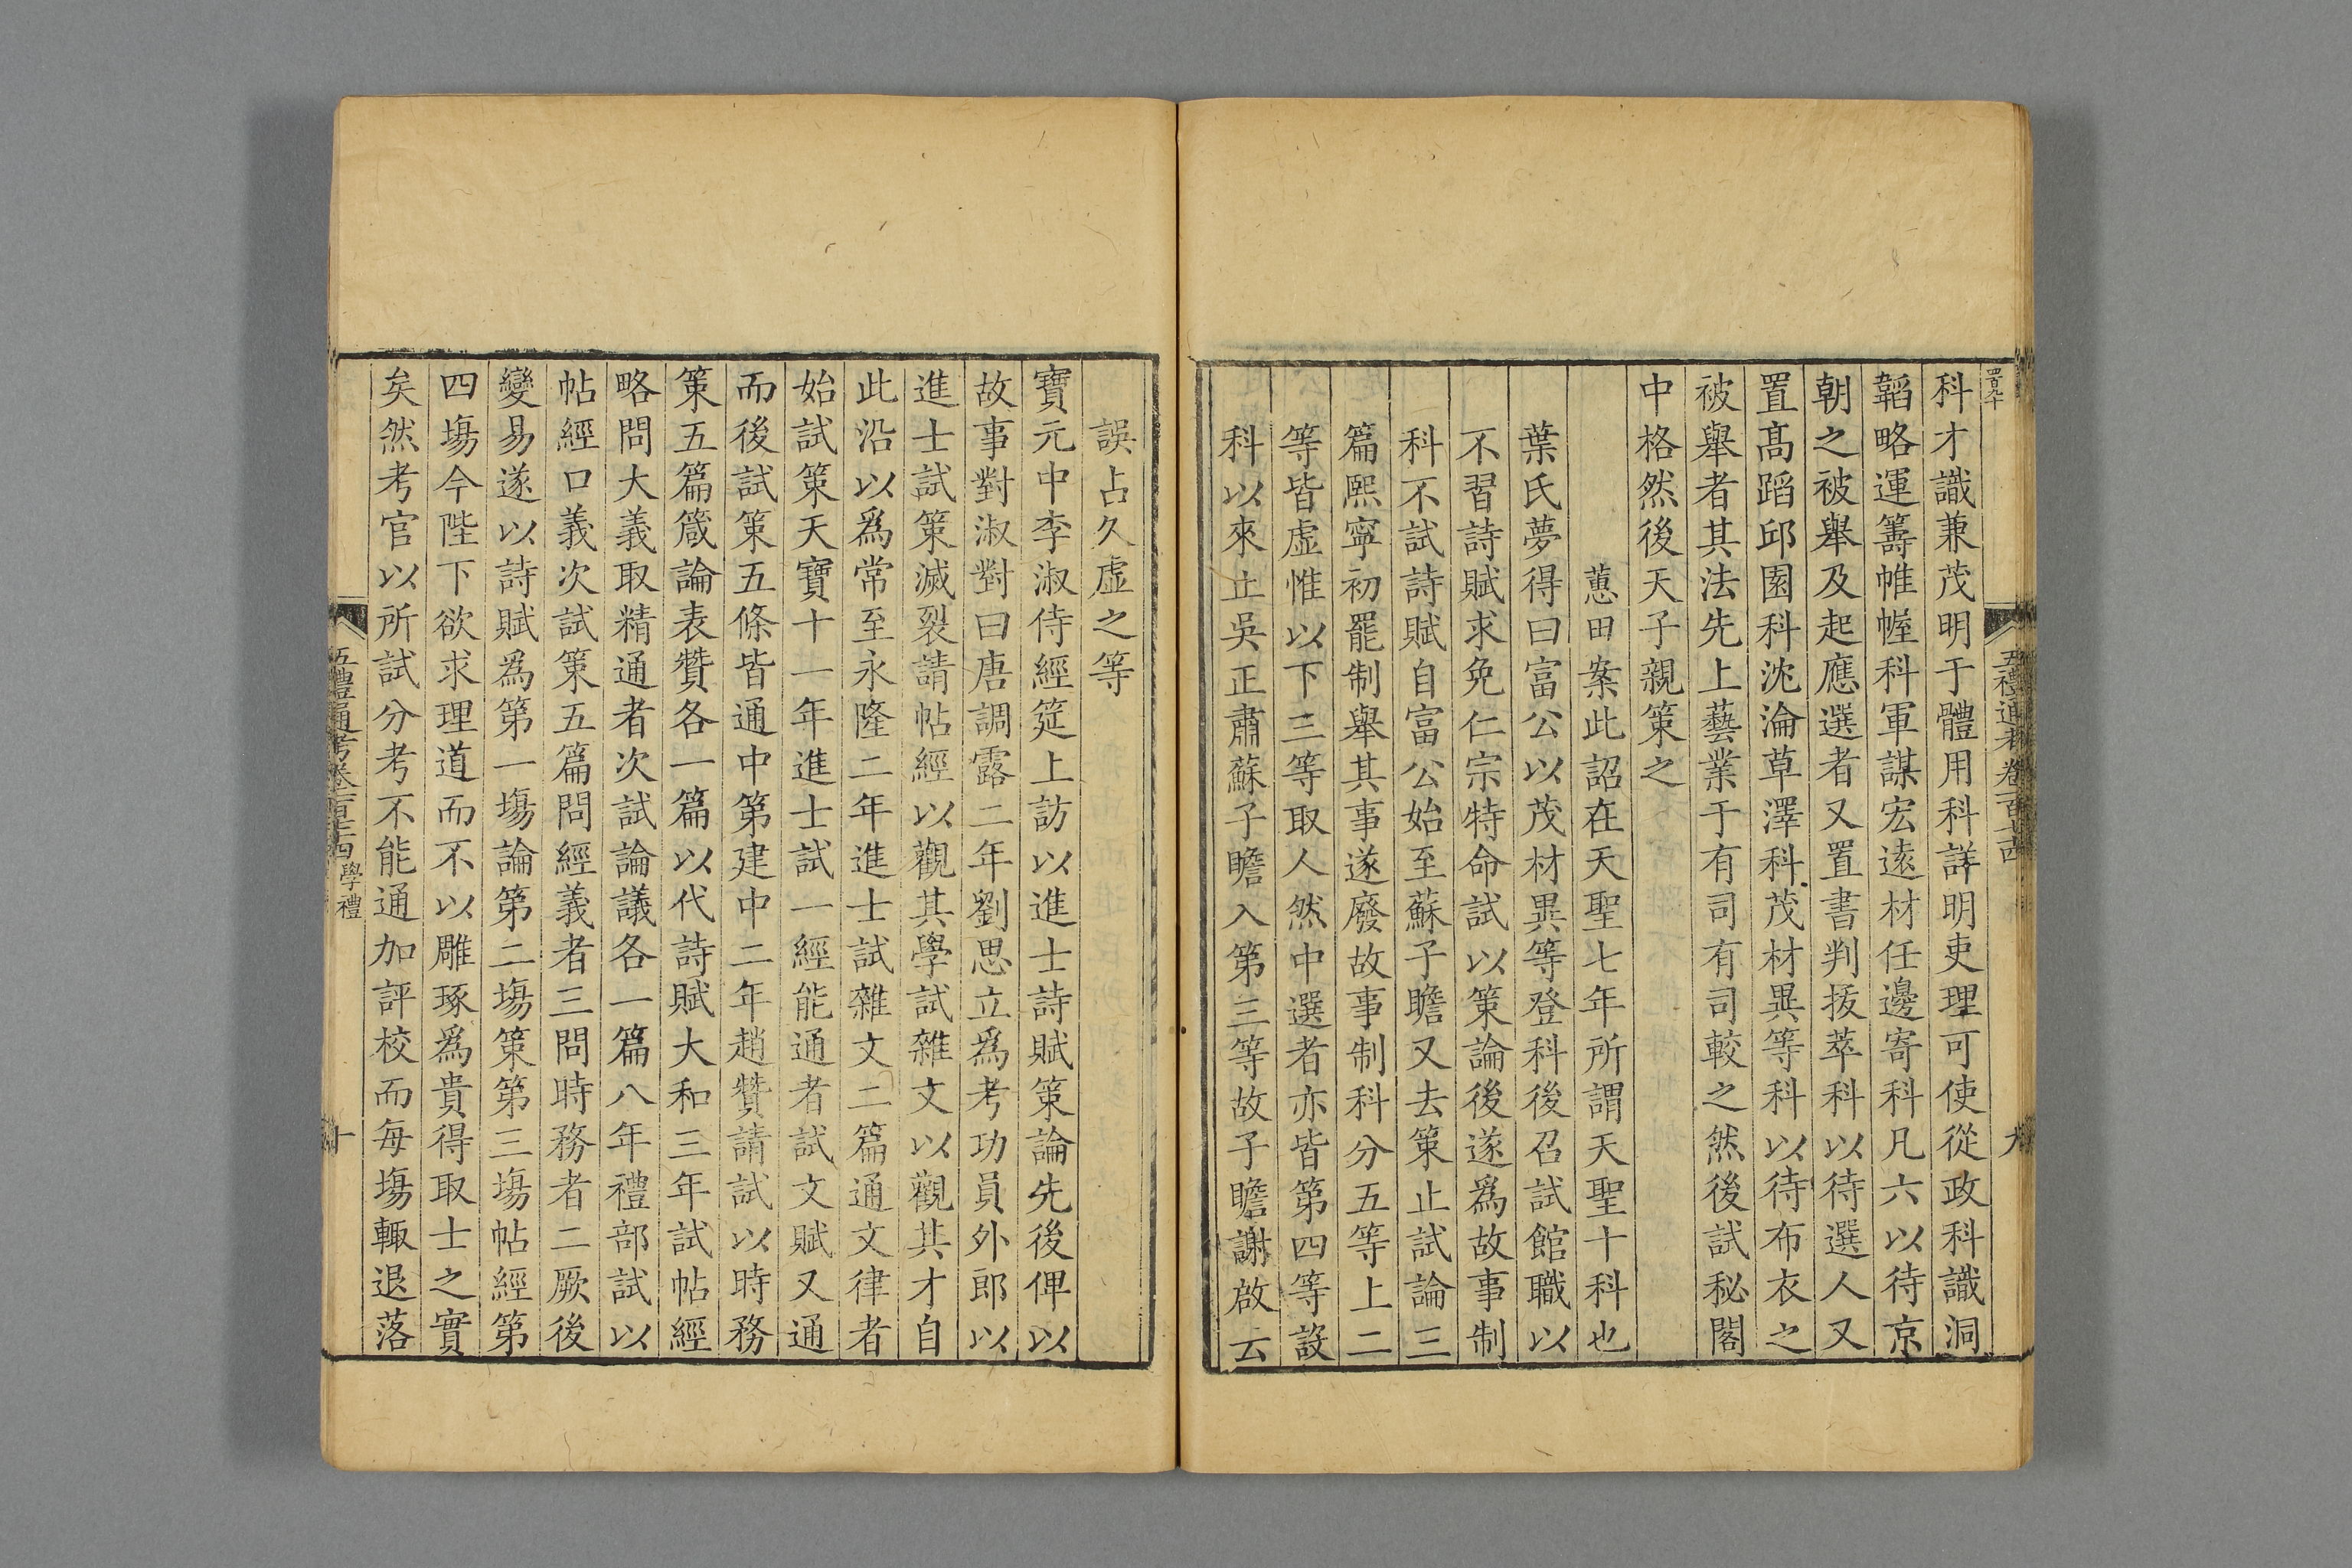 四百九十
五禮通考卷一百七十四
九
科才識兼茂明于體用科詳明吏理可使從政科識洞
韜略運籌帷幄科軍謀宏遠材任邊寄科凡六以待京
朝之被舉及起應選者又置書判拔萃科以待選人又
置高蹈邱園科沈淪草澤科茂材異等科以待布衣之
被舉者其法先上藝業于有司有司較之然後試秘閣
中格然後天子親策之
蕙田案此詔在天聖七年所謂天聖十科也
葉氏夢得曰富公以茂材異等登科後召試館職以
不習詩賦求免仁宗特命試以策論後遂爲故事制
科不試詩賦自富公始至蘇子瞻又去策止試論三
篇熙寧初罷制舉其事遂廢故事制科分五等上二
等皆虛惟以下三等取人然中選者亦皆第四等設
科以來止吳正肅蘇子瞻入第三等故子瞻謝啟云
誤占久虛之等
寶元中李淑侍經筵上訪以進士詩賦策論先後俾以
故事對淑對曰唐調露二年劉思立爲考功員外郎以
進士試策滅裂請帖經以觀其學試雜文以觀其才自
此沿以爲常至永隆二年進士試雜文二篇通文律者
始試策天寶十一年進士試一經能通者試文賦又通
而後試策五條皆通中第建中二年趙贊請試以時務
策五篇箴論表贊各一篇以代詩賦大和三年試帖經
略問大義取精通者次試論議各一篇八年禮部試以
帖經口義次試策五篇問經義者三問時務者二厥後
變易遂以詩賦爲第一場論第二場策第三場帖經第
四場今陛下欲求理道而不以雕琢爲貴得取士之實
矣然考官以所試分考不能通加評校而每場輒退落
五禮通考卷一百七十四 學禮
十